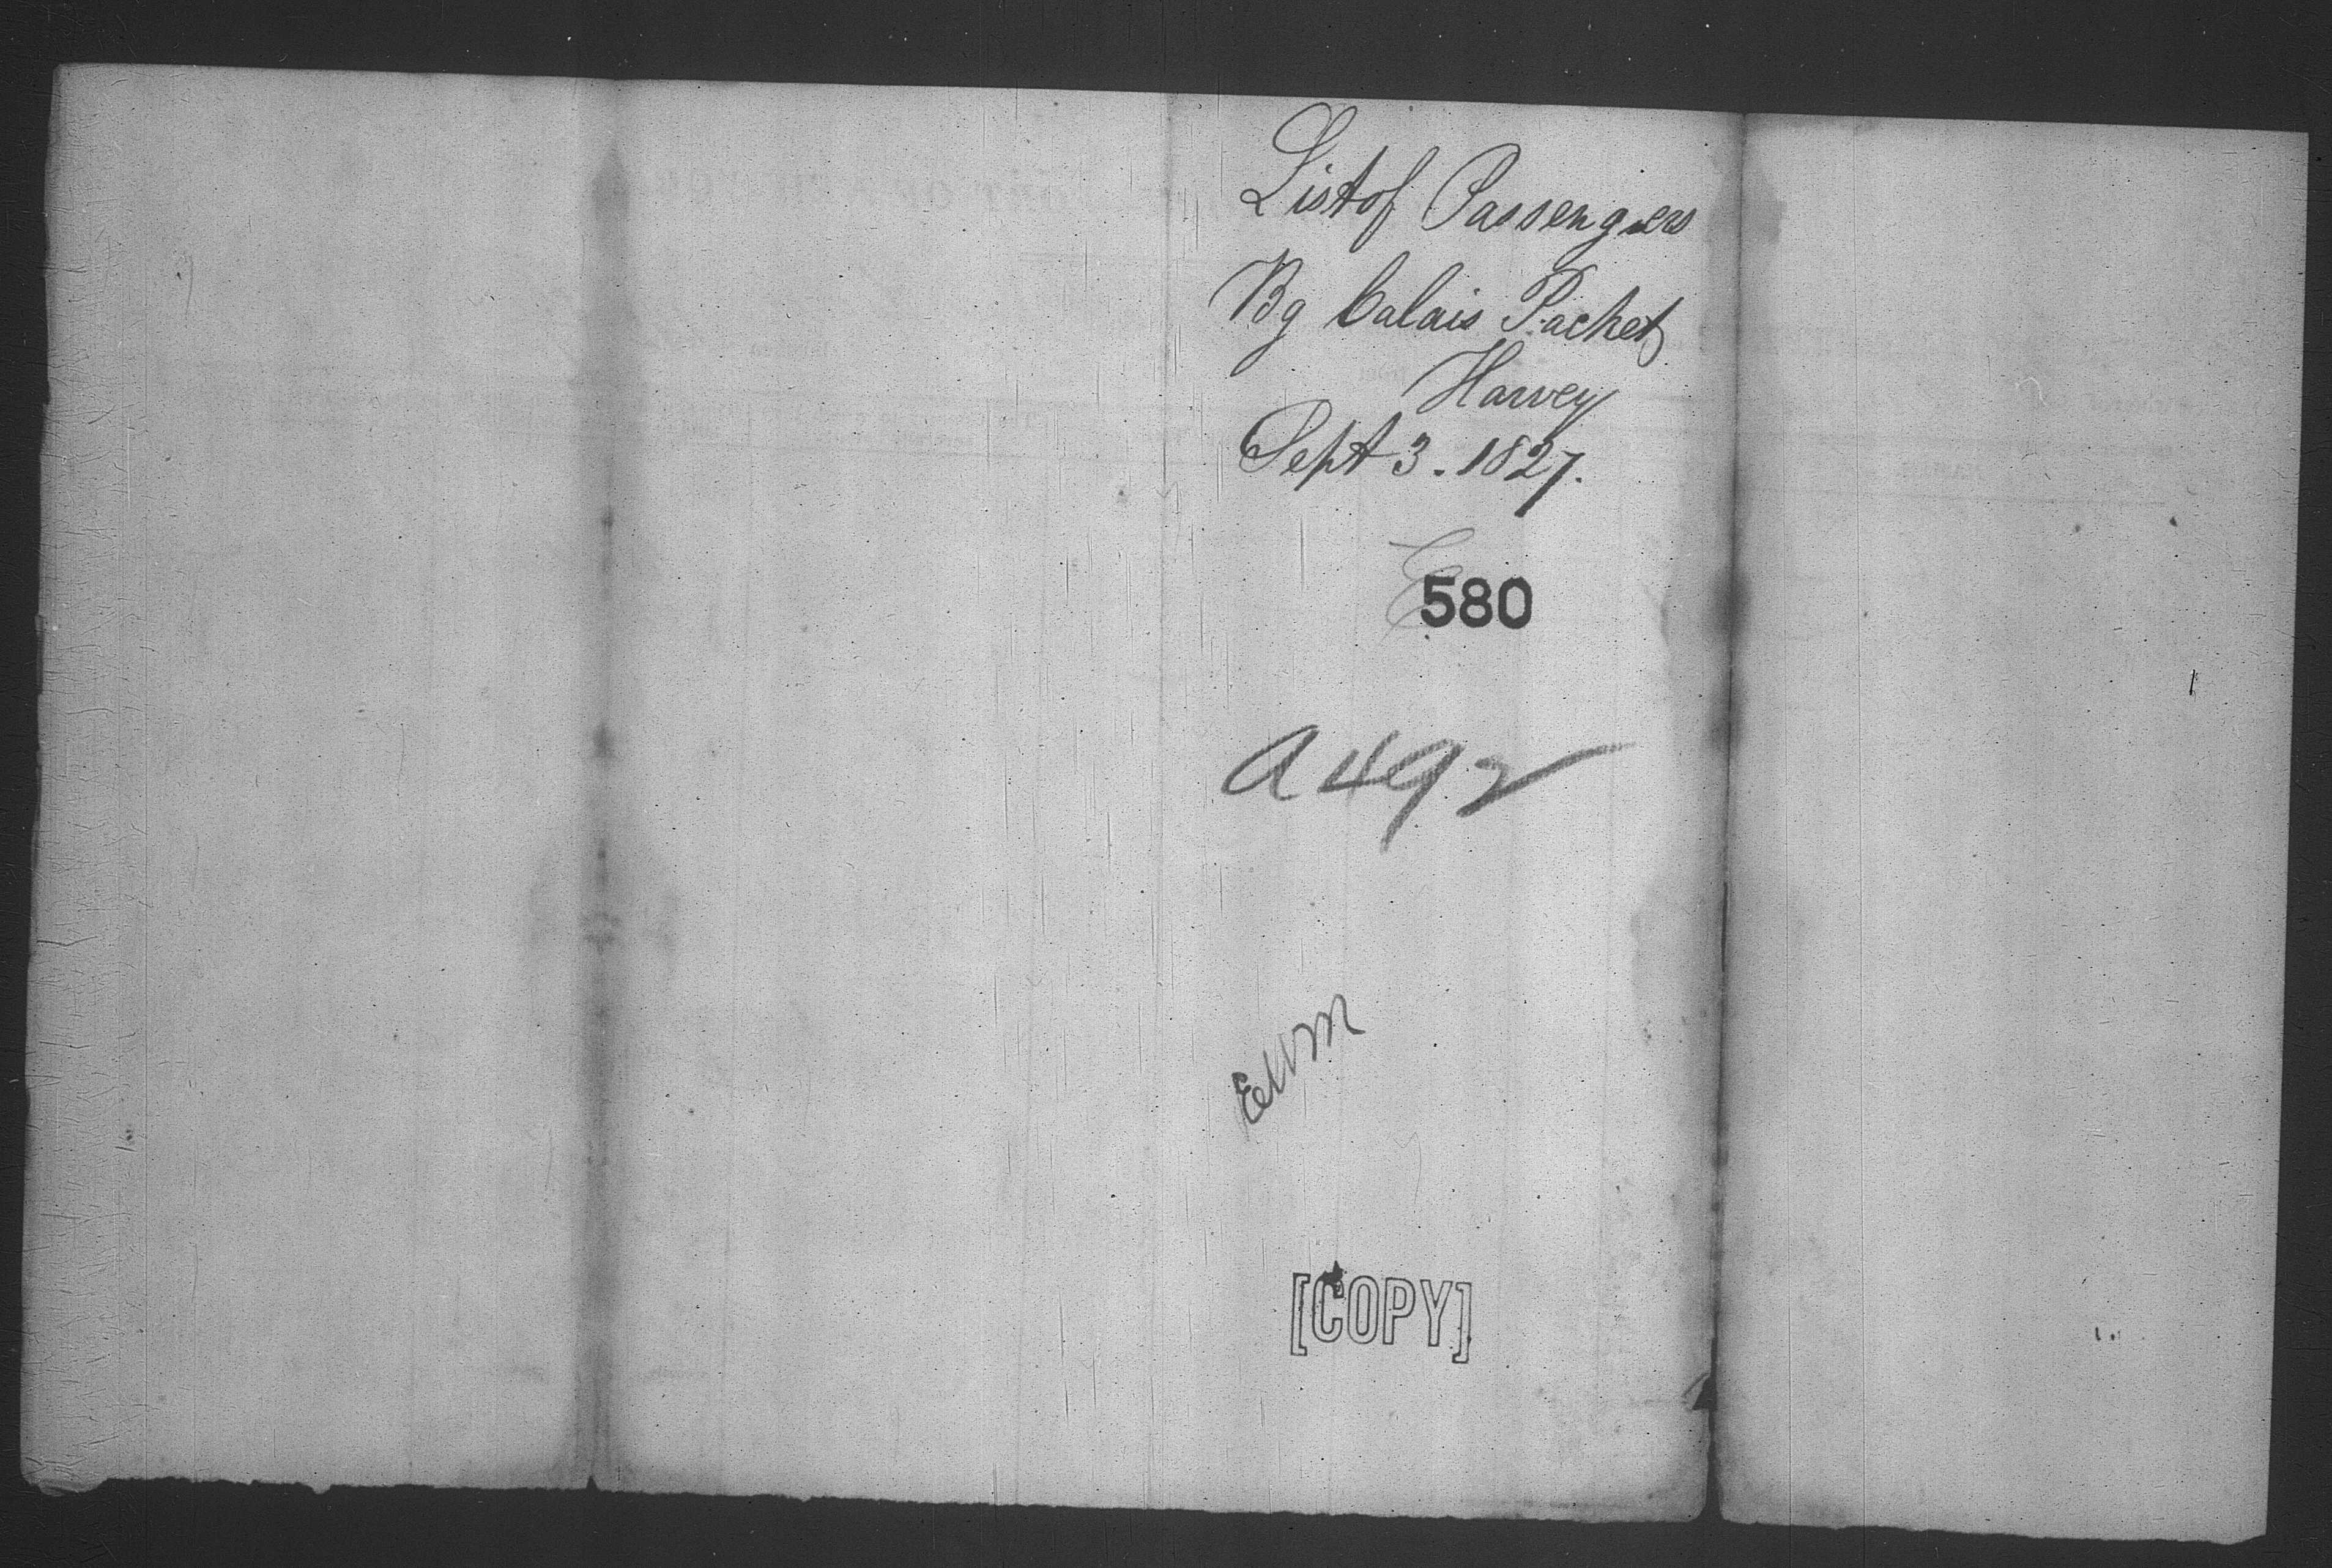 List of Passengers
Bg Calais Packet
Harvey
Sept 3. 1827.
580
A492
[COPY]